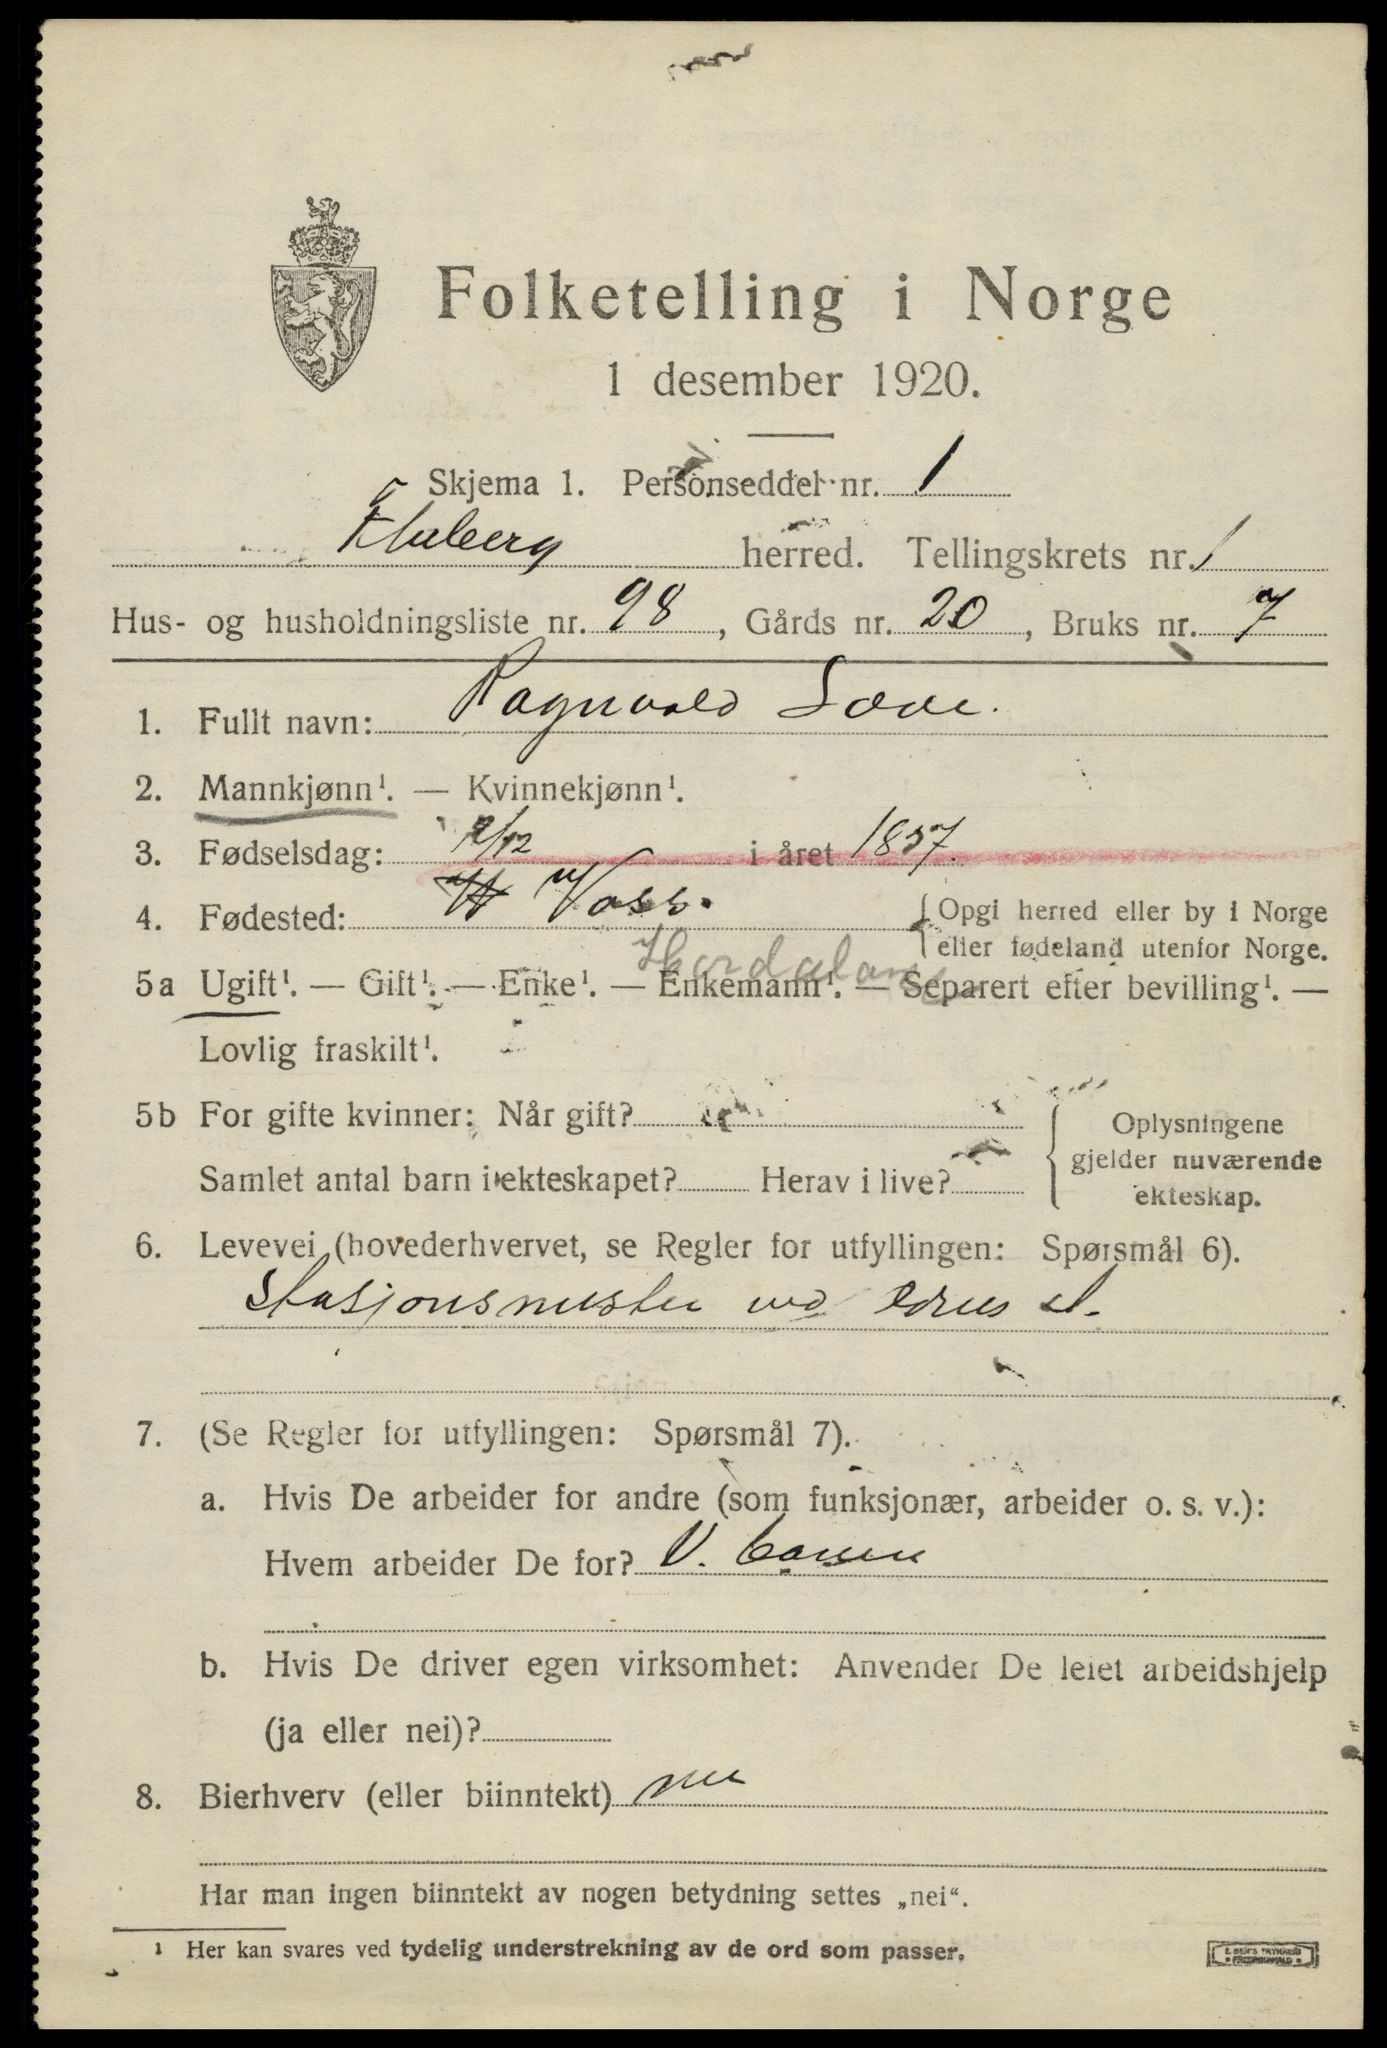 Folketelling i Norge
1 desember 1920.
Skjema 1. Personseddel nr. 1
Fluberg herred. Tellingskrets nr. 1
Hus- og husholdningsliste nr. 98, Gårds nr. 20, Bruks nr. 7
1. Fullt navn: Ragnvald
2. Mannkjønn¹. — Kvinnekjønn¹.
3. Fødselsdag: /12 i året 1857.
4. Fødested: Voss.
{Opgi herred eller by i Norge
eller fødeland utenfor Norge.
Hordaland
5a Ugift¹. — Gift¹. — Enke¹. — Enkemann¹. — Separert efter bevilling¹. —
Lovlig fraskilt¹.
5b For gifte kvinner: Når gift?
Samlet antal barn i ekteskapet? Herav i live?
{Oplysningene
gjelder nuværende
ekteskap.
6. Levevei (hovederhvervet, se Regler for utfyllingen: Spørsmål 6).
Stasjonsmester ved st.
7. (Se Regler for utfyllingen: Spørsmål 7).
a. Hvis De arbeider for andre (som funksjonær, arbeider o. s. v.):
Hvem arbeider De for? V. banen
b. Hvis De driver egen virksomhet: Anvender De leiet arbeidshjelp
(ja eller nei)?
8. Bierhverv (eller biinntekt) nei
Har man ingen biinntekt av nogen betydning settes „nei“.
¹ Her kan svares ved tydelig understrekning av de ord som passer.